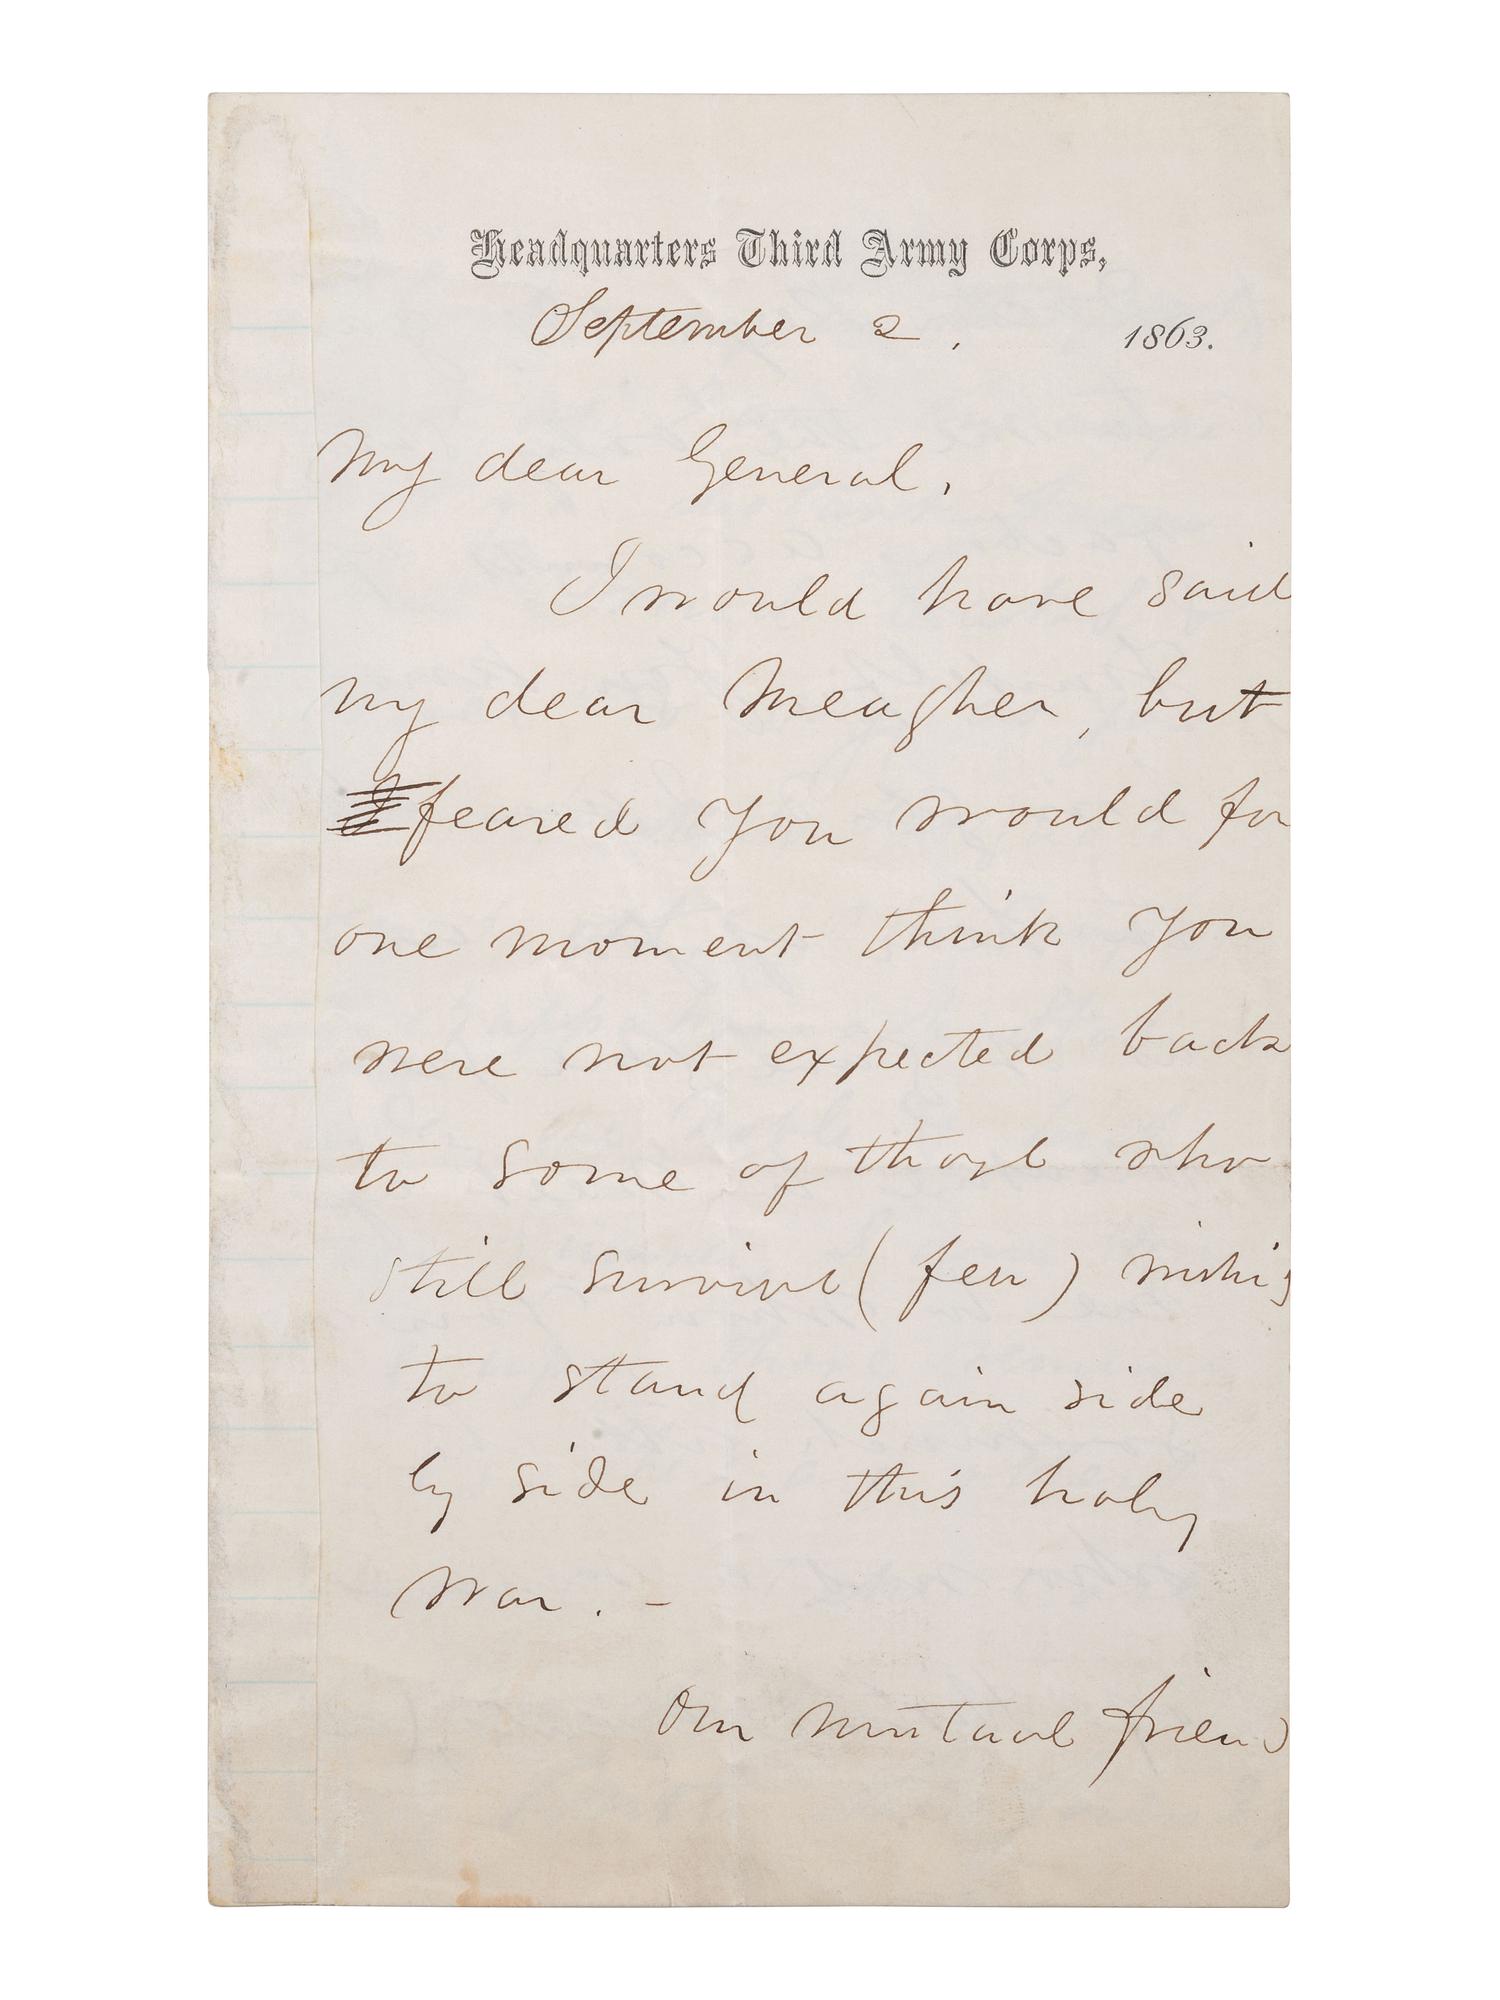 Headquarters Third Army Corps,
September 2. 1863.
My dear General,
I would have said
my dear Meagher, but
feared you would for
one moment think you
were not expected back
to some of those who
still survive (few) wishing
to stand again side
by side in this holy
war. -
Our mutual friend